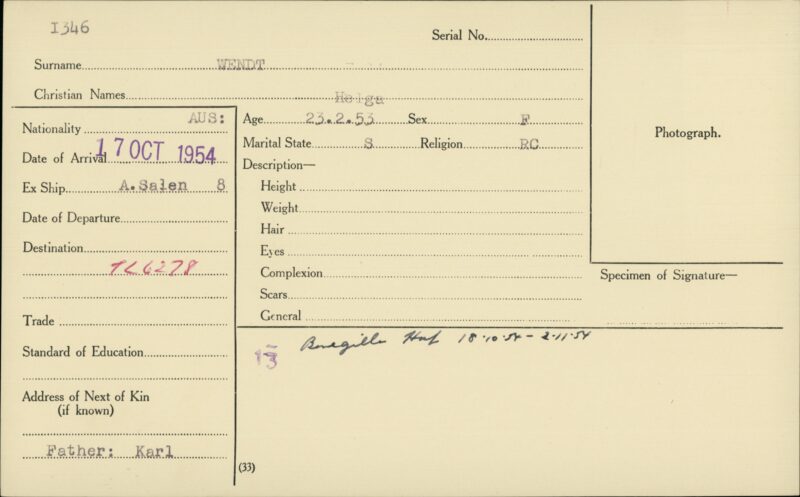 I346
Serial No.
Surname WENDT
Christian Names Helga
Nationality AUS:
Date of Arrival 17 OCT 1954
Ex Ship A.Salen 8
Date of Departure
Destination
Trade
Standard of Education
Address of Next of Kin
(if known)
Father: Karl
Age 23.2.53 Sex F
Marital State S Religion RC
Description—
Height
Weight
Hair
Eyes
Complexion
Scars
General
Bonegilla Hosp 18.10.54 - 2.11.54
(33)
Photograph.
Specimen of Signature—